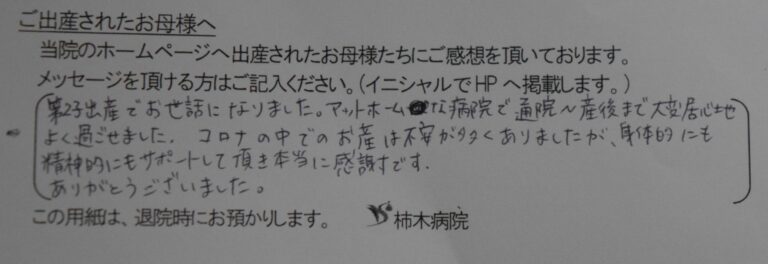 ご出産されたお母様へ
当院のホームページへ出産されたお母様たちにご感想を頂いております。
メッセージを頂ける方はご記入ください。(イニシャルでHPへ掲載します。)
第2子出産でお世話になりました。アットホームな病院で通院~産後まで大変居心地
よく過ごせました。コロナの中でのお産は不安が多くありましたが、身体的にも
精神的にもサポートして頂き本当に感謝です.
ありがとうございました。
この用紙は、退院時にお預かりします。 柿木病院